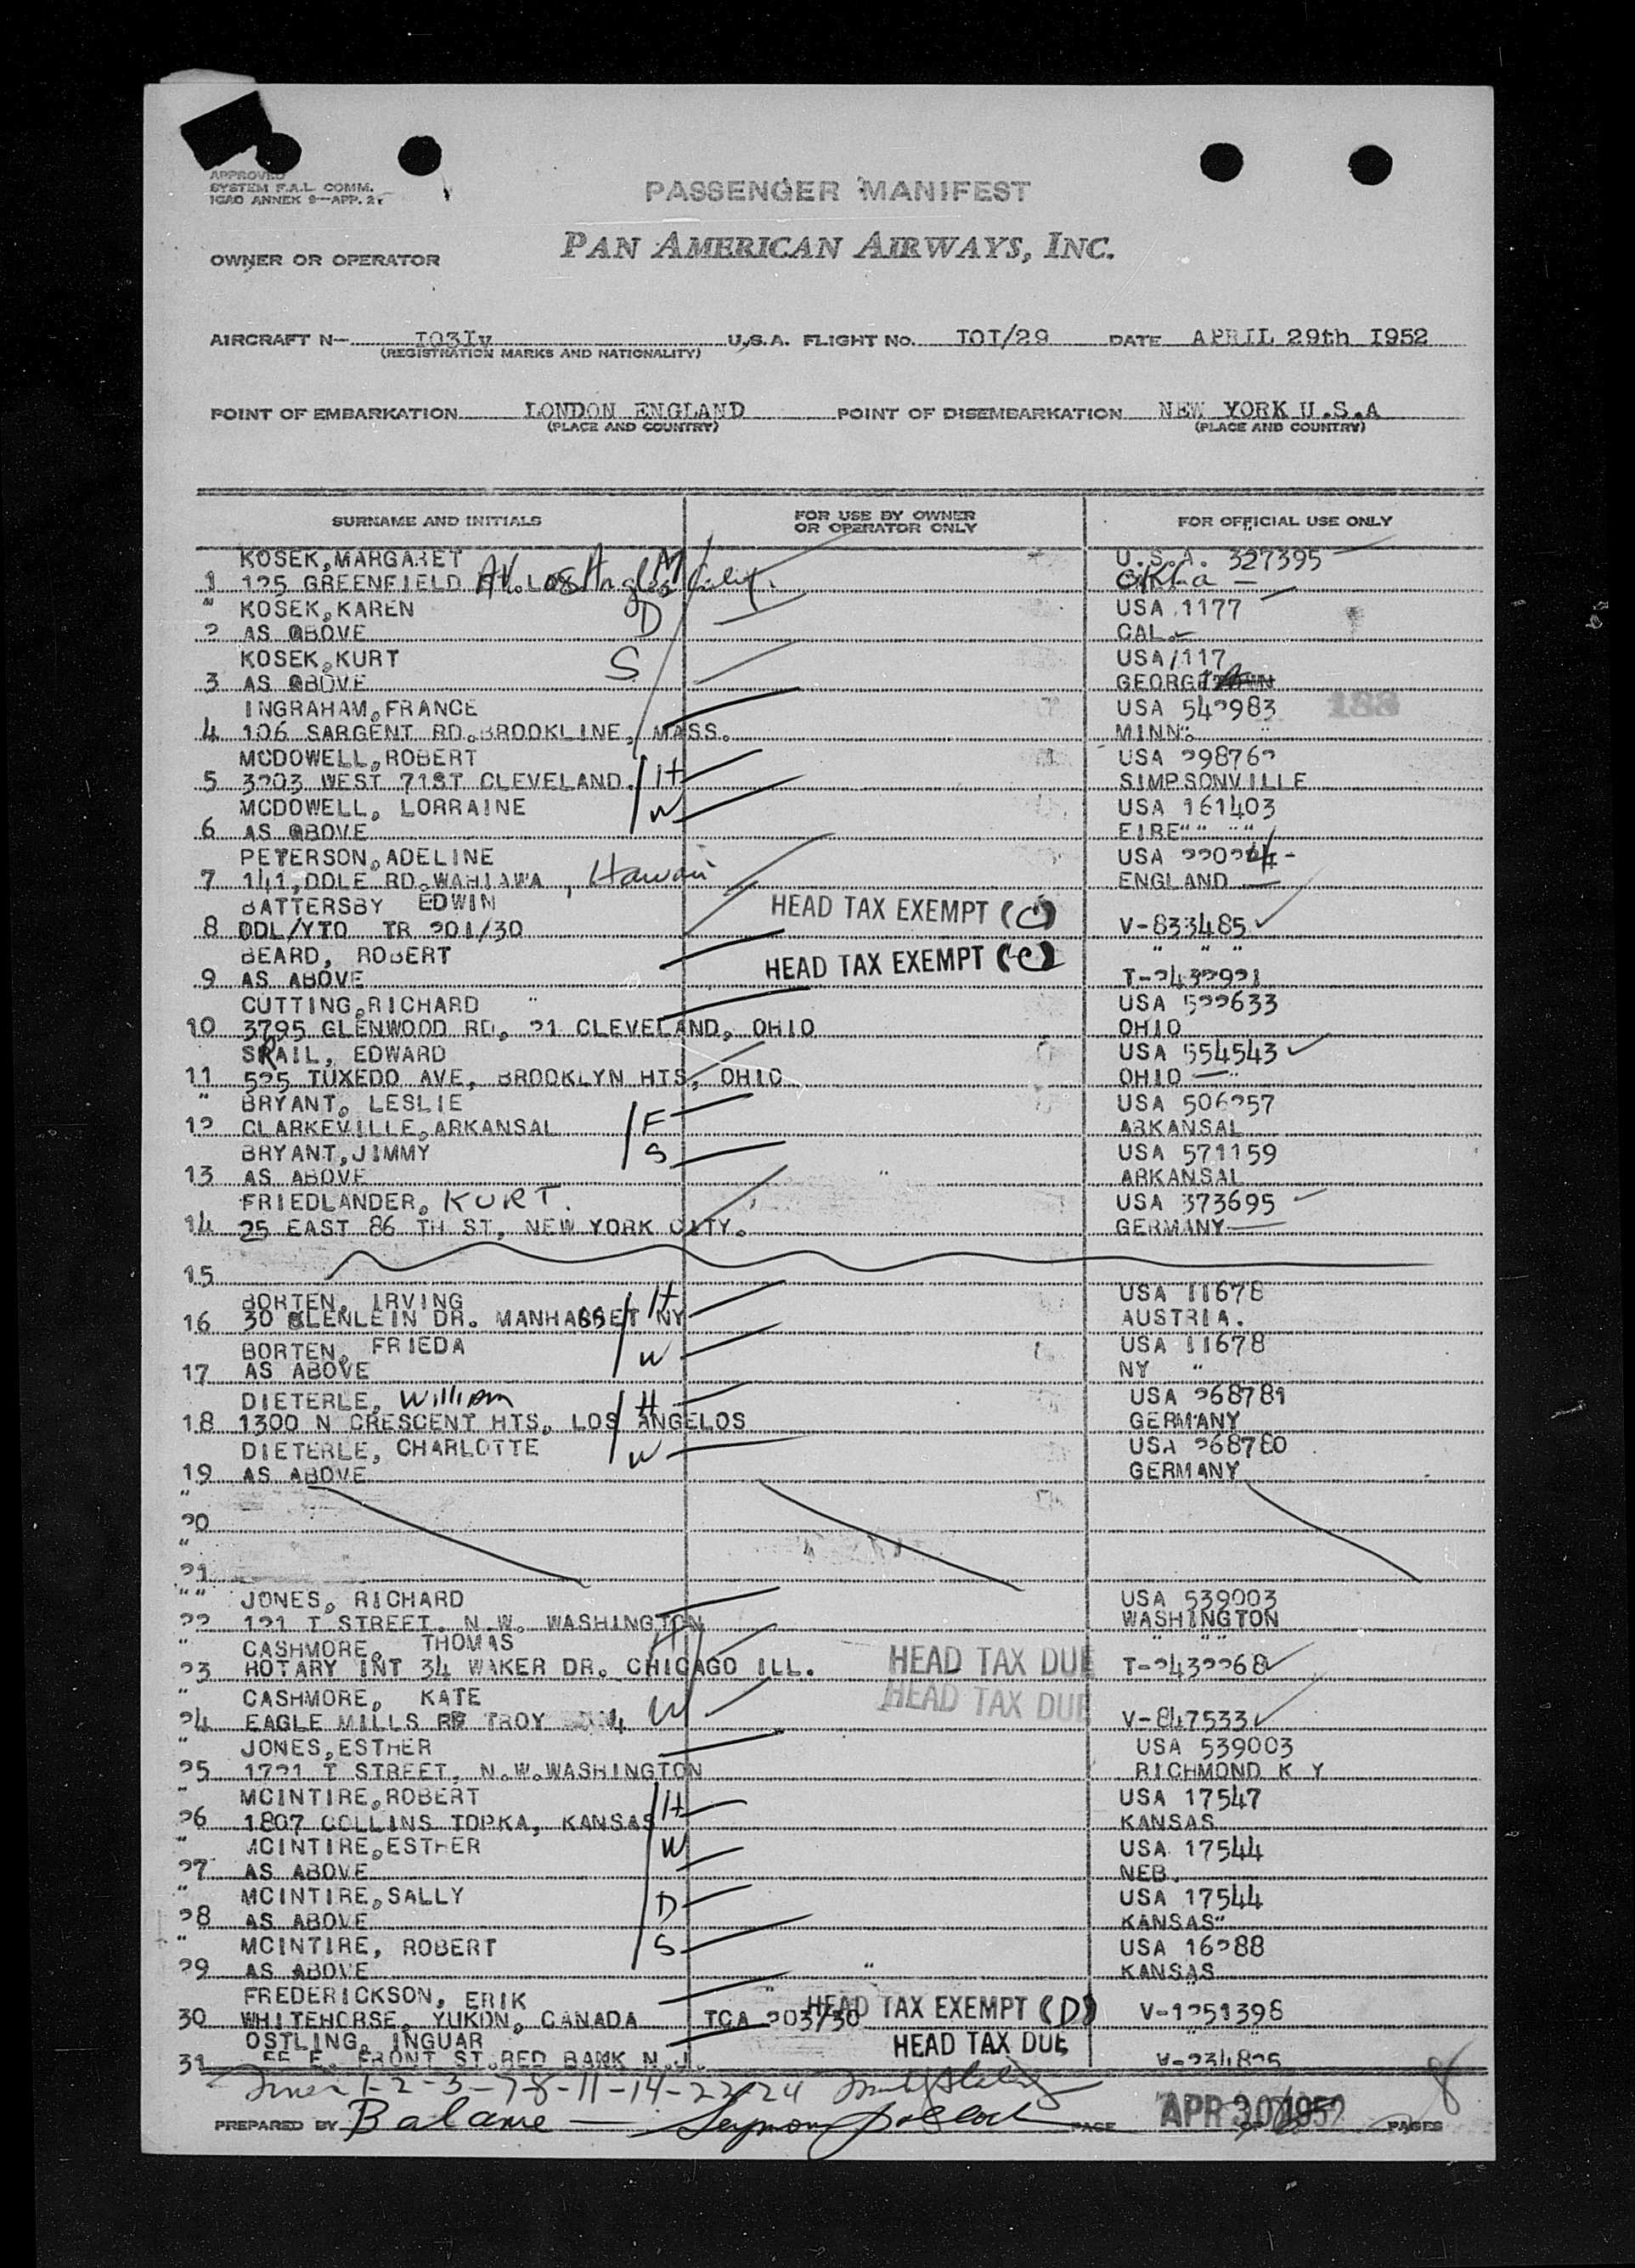 APPROVED
SYSTEM F.A.L. COMM.
ICAO ANNEX 9—APP. 2
PASSENGER MANIFEST
OWNER OR OPERATOR PAN AMERICAN AIRWAYS, INC.
AIRCRAFT N— I03Iv U.S.A. FLIGHT NO. IOI/29 DATE APRIL 29th I952
(REGISTRATION MARKS AND NATIONALITY)
POINT OF EMBARKATION LONDON ENGLAND POINT OF DISEMBARKATION NEW YORK U.S.A
(PLACE AND COUNTRY) (PLACE AND COUNTRY)
SURNAME AND INITIALS FOR USE BY OWNER OR OPERATOR ONLY FOR OFFICIAL USE ONLY
KOSEK,MARGARET M U.S.A. 327395
1 125 GREENFIELD AV. LOS Angles Calif. Okla
KOSEK,KAREN D USA 1177
2 AS ABOVE CAL.
KOSEK,KURT S USA/117
3 AS ABOVE
INGRAHAM,FRANCE USA 542983 188
4 106 SARGENT RD.BROOKLINE, MASS. MINN.
MCDOWELL,ROBERT USA 298762
5 3203 WEST 71ST CLEVELAND. H SIMPSONVILLE
MCDOWELL, LORRAINE W USA 161403
6 AS ABOVE EIRE
PETERSON,ADELINE USA 220224
7 141,DOLE RD.WAHIAWA , Hawaii ENGLAND
BATTERSBY EDWIN HEAD TAX EXEMPT (C)
8 DDL/YTO TR 201/30 V-833485
BEARD, ROBERT HEAD TAX EXEMPT (C)
9 AS ABOVE T-2432921
CUTTING,RICHARD USA 522633
10 3795 GLENWOOD RD, 21 CLEVELAND, OHIO OHIO
SRAIL, EDWARD USA 554543
11 525 TUXEDO AVE, BROOKLYN HTS, OHIO OHIO
BRYANT, LESLIE F USA 506257
12 CLARKEVILLE,ARKANSAL ARKANSAL
BRYANT,JIMMY S USA 571159
13 AS ABOVE ARKANSAL
FRIEDLANDER, KURT. USA 373695
14 25 EAST 86 TH ST, NEW YORK CITY. GERMANY
15
BORTEN, IRVING H USA 11678
16 30 GLENLEIN DR. MANHASSET NY AUSTRIA.
BORTEN, FRIEDA W USA 11678
17 AS ABOVE NY
DIETERLE, William H USA 268781
18 1300 N CRESCENT HTS, LOS ANGELOS GERMANY
DIETERLE, CHARLOTTE W USA 268780
19 AS ABOVE GERMANY
20
21
JONES, RICHARD USA 539003
22 121 T STREET. N.W. WASHINGTON WASHINGTON
CASHMORE, THOMAS H
23 ROTARY INT 34 WAKER DR. CHICAGO ILL. HEAD TAX DUE T-2432268
CASHMORE, KATE W HEAD TAX DUE
24 EAGLE MILLS RD TROY V-847533
JONES,ESTHER USA 539003
25 1721 T STREET. N.W.WASHINGTON RICHMOND K Y
MCINTIRE,ROBERT H USA 17547
26 1807 COLLINS TOPKA, KANSAS KANSAS
MCINTIRE,ESTHER W USA 17544
27 AS ABOVE NEB.
MCINTIRE,SALLY D USA 17544
28 AS ABOVE KANSAS
MCINTIRE, ROBERT S USA 16288
29 AS ABOVE KANSAS
FREDERICKSON, ERIK HEAD TAX EXEMPT (D)
30 WHITEHORSE, YUKON, CANADA TCA 203/30 V-1251398
OSTLING, INGUAR HEAD TAX DUE
31 55 E. FRONT ST.RED BANK N.J. V-234825
1-2-3-7-8-11-14-22/24 8
PREPARED BY Balame Seymour Pollock PAGE APR 30 1952 OF PAGES